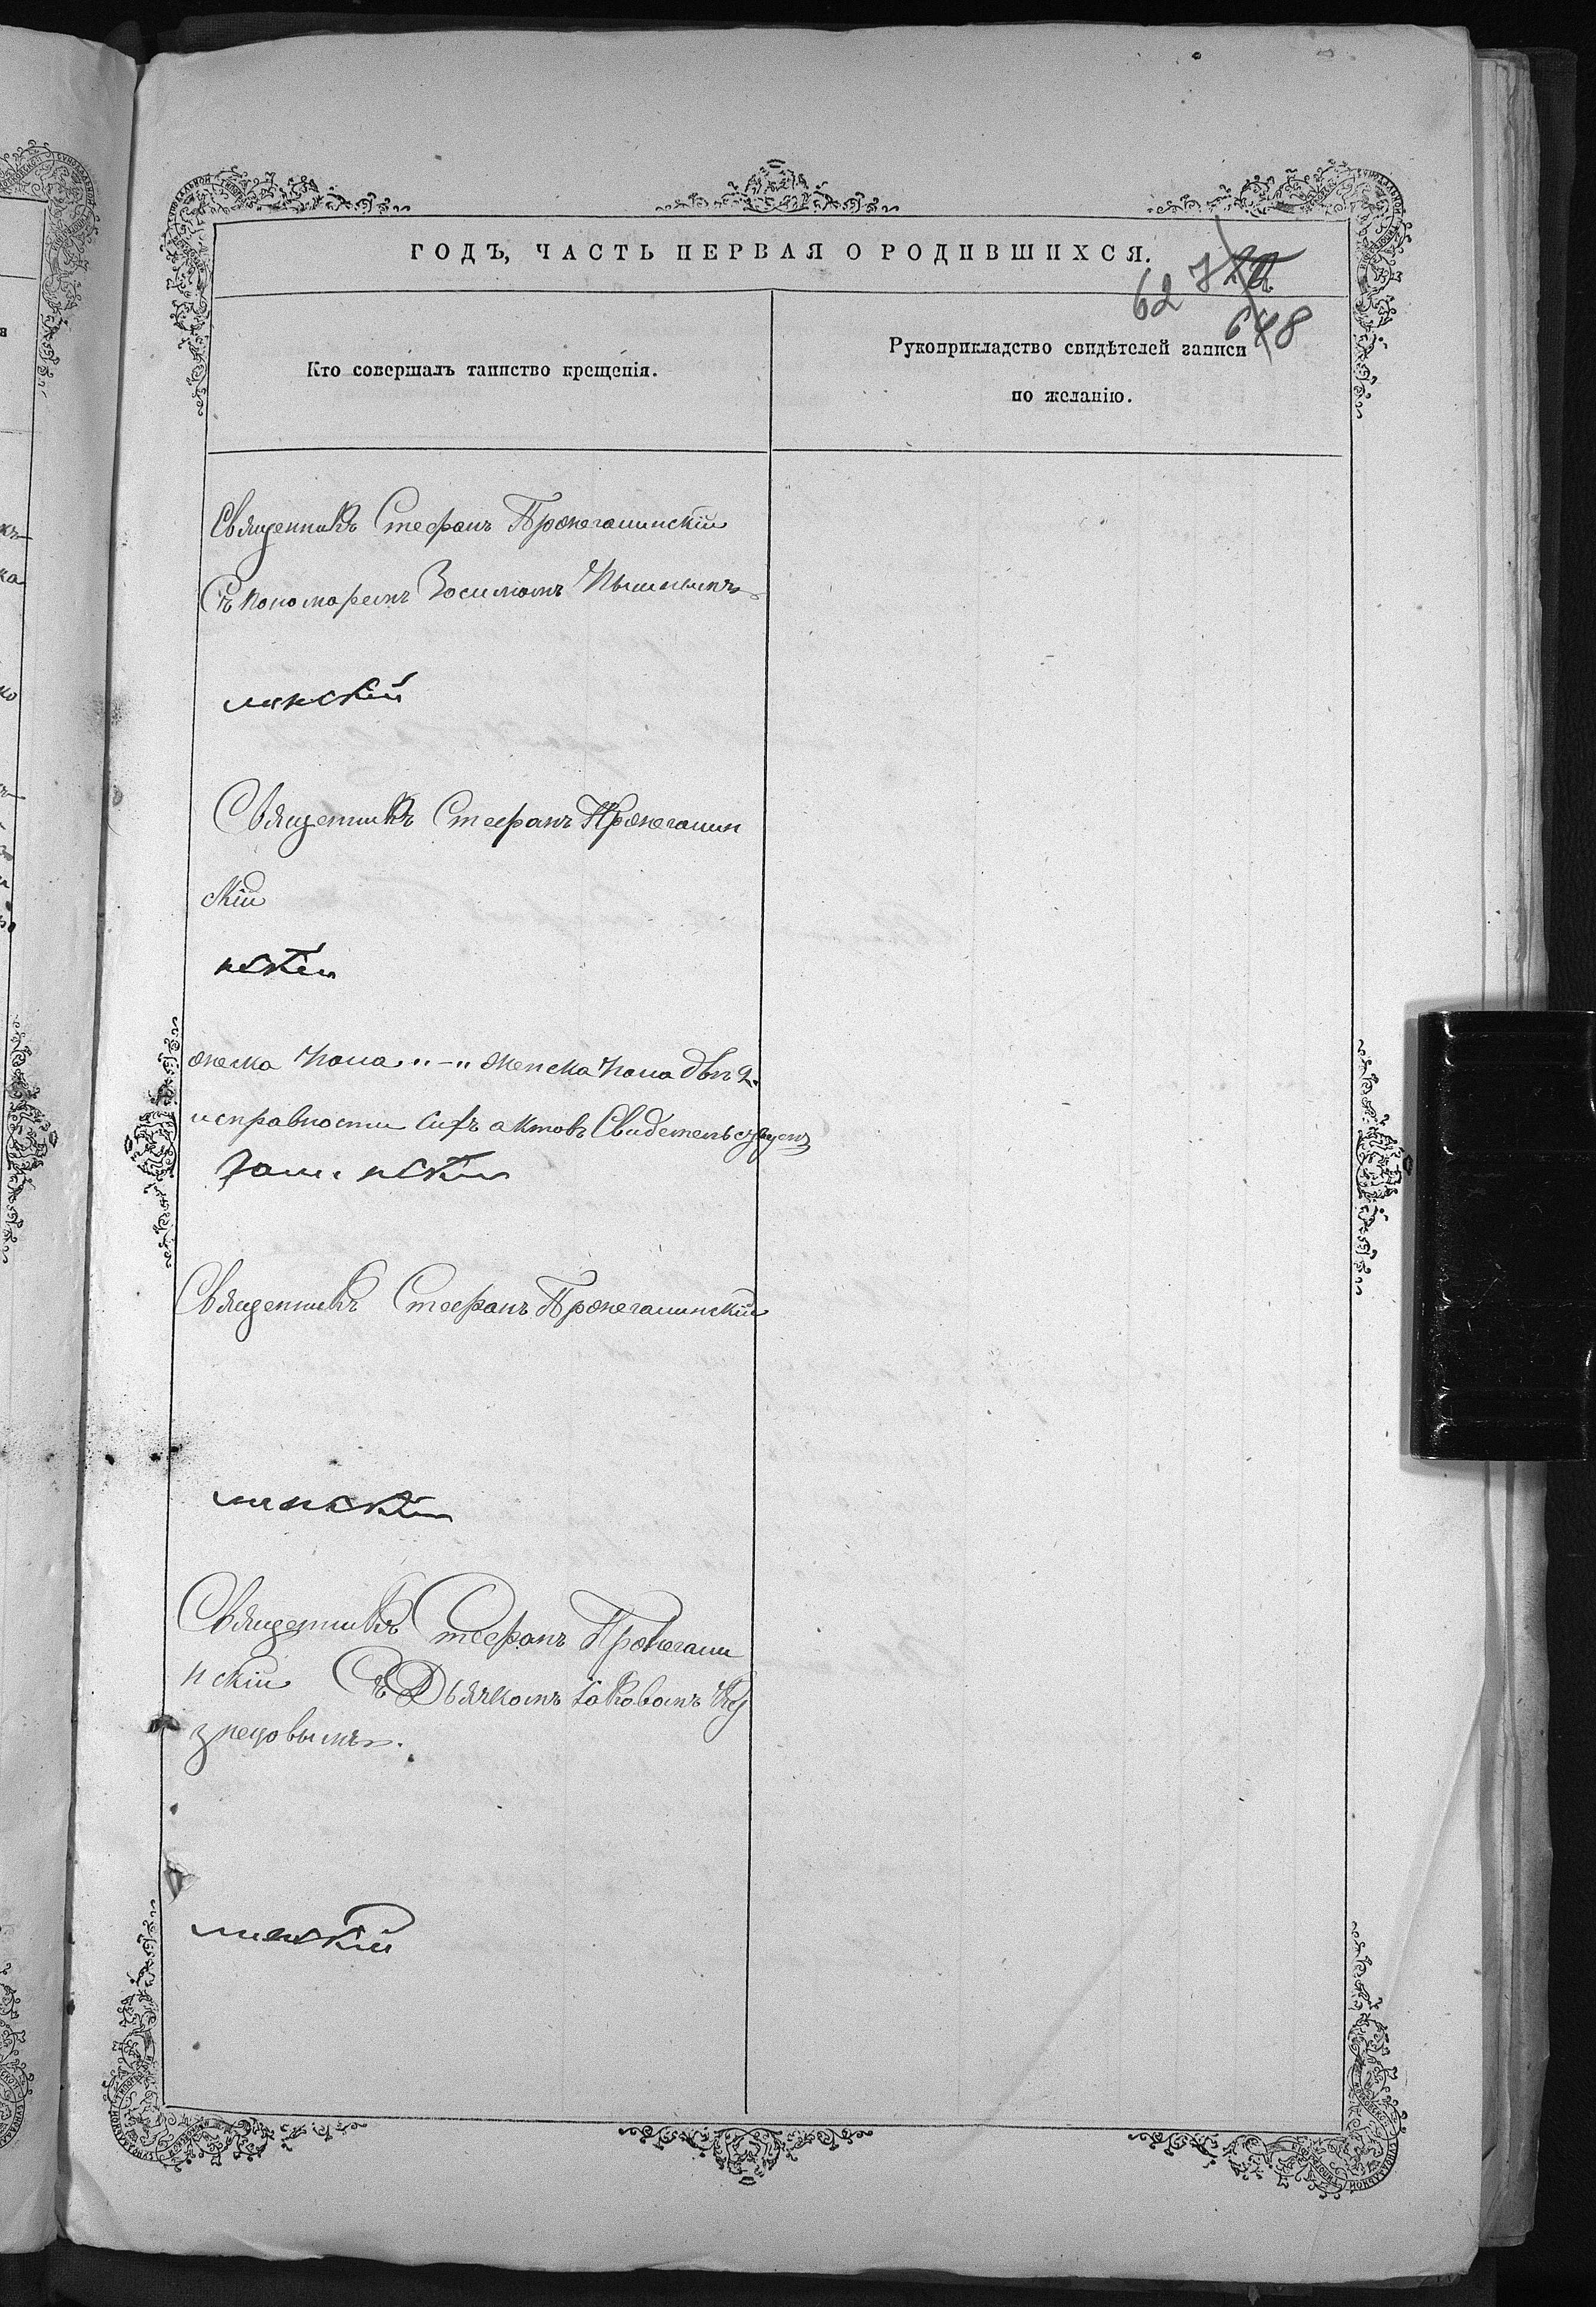 ГОДЪ, ЧАСТЬ ПЕРВАЯ О РОДИВШИХСЯ.
62
648
Кто совершалъ таинство крещенія.
Рукоприкладство свидѣтелей записи
по желанію.
Священникъ Стефанъ Пронегашинскій
Съ пономаремъ Зосимомъ
шнскій
Священникъ Стефанъ Пронегашин
скій
нскій
женска пола „-„ женска пола двѣ 2.
исправности сихъ актовъ Свидетельствуемъ
гаши нскій
Священникъ Стефанъ Пронегашинскій
шинскій
Священникъ Стефанъ Пронегаши
нскій Съ Дьячкомъ Іаковомъ Ку
знецовымъ.
шнскій